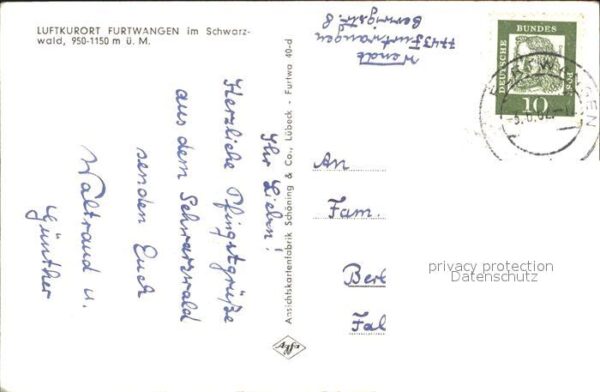 LUFTKURORT FURTWANGEN im Schwarz-
wald, 950-1150 m ü. M.
Ihr Lieben!
Herzliche Pfingstgrüße
aus dem Schwarzwald
senden Euch
Waltraud u.
Günther
Ansichtskartenfabrik Schöning & Co., Lübeck - Furtwa 40-d
Wendt
7743 Furtwangen
8
DEUTSCHE BUNDES POST
10
An
Fam.
Bert
Fal
privacy protection
Datenschutz